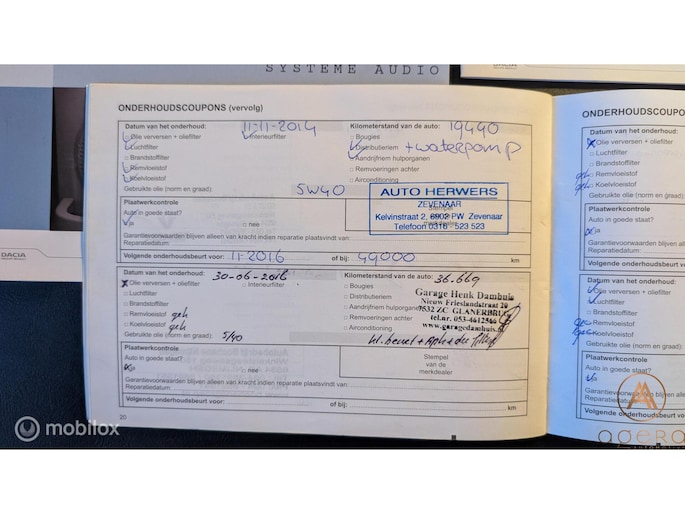 SYSTEME AUDIO
DACIA
DACIA
ONDERHOUDSCOUPONS (vervolg)
Datum van het onderhoud: 11-11-2014 Kilometerstand van de auto: 19440
Olie verversen + oliefilter Interieurfilter Bougies
Luchtfilter Distributieriem + waterpomp
Brandstoffilter Aandrijfriem hulporganen
Remvloeistof Remvoeringen achter
Koelvloeistof Airconditioning
Gebruikte olie (norm en graad): 5W40
AUTO HERWERS
ZEVENAAR
Kelvinstraat 2, 6902 PW Zevenaar
Telefoon 0316 - 523 523
Plaatwerkcontrole
Auto in goede staat?
ja nee
Garantievoorwaarden blijven alleen van kracht indien reparatie plaatsvindt van:
Reparatiedatum:
Volgende onderhoudsbeurt voor: 11-2016 of bij: 49000 km
Datum van het onderhoud: 30-06-2016 Kilometerstand van de auto: 36.669
Olie verversen + oliefilter Interieurfilter Bougies
Luchtfilter Distributieriem
Brandstoffilter Aandrijfriem hulporganen
Remvloeistof geh Remvoeringen achter
Koelvloeistof geh Airconditioning
Gebruikte olie (norm en graad): 5/40
Garage Henk Damhuis
Nieuw Frieslandstraat 20
7532 ZC GLANERBRUG
tel.nr. 053-4612566
www.garagedamhuis.nl
Kl. beurt +
Plaatwerkcontrole
Auto in goede staat?
ja nee
Stempel
van de
merkdealer
Garantievoorwaarden blijven alleen van kracht indien reparatie plaatsvindt van:
Reparatiedatum:
Volgende onderhoudsbeurt voor: of bij: km
20
ONDERHOUDSCOUPONS
Datum van het onderhoud:
Olie verversen + oliefilter
Luchtfilter
Brandstoffilter
geh Remvloeistof
geh Koelvloeistof
Gebruikte olie (norm en graad):
Plaatwerkcontrole
Auto in goede staat?
ja
Garantievoorwaarden blijven
Reparatiedatum:
Volgende onderhoudsbeurt
Datum van het onderhoud:
Olie verversen + oliefilter
Luchtfilter
Brandstoffilter
Remvloeistof
Koelvloeistof
Gebruikte olie (norm en
Plaatwerkcontrole
Auto in goede staat?
Garantievoorwaarden
Reparatiedatum:
Volgende onderhoud
mobilox